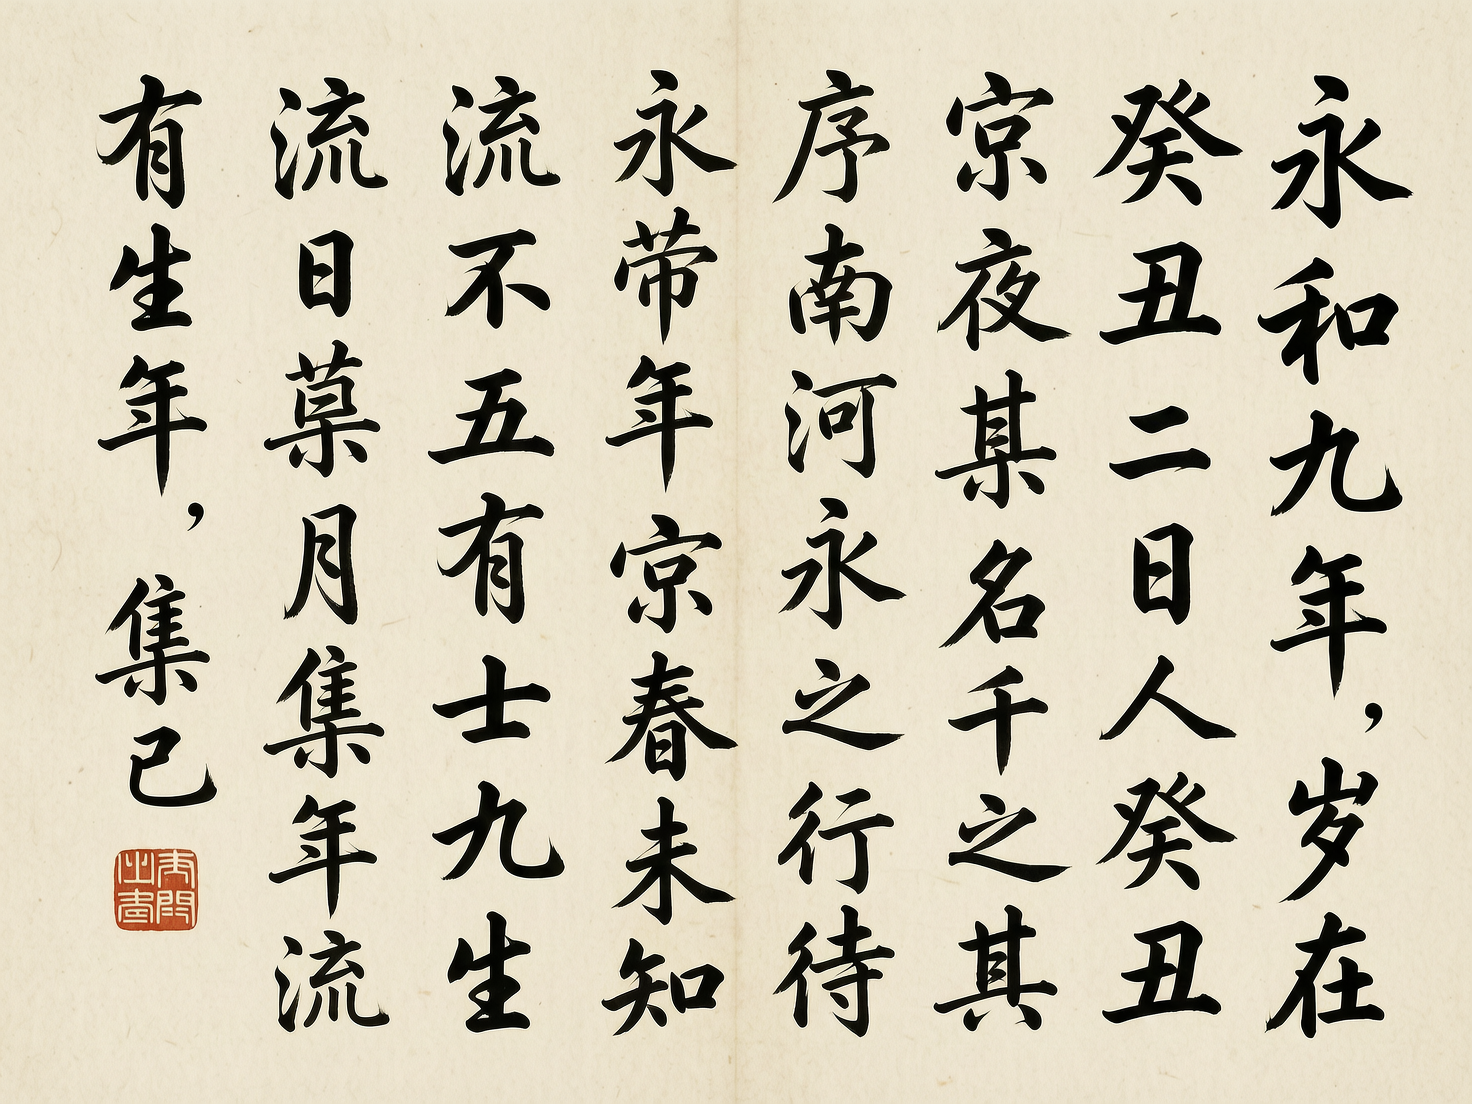 永和九年，岁在
癸丑二日人癸丑
夜某名千之其
序南河永之行待
永带年春未知
流不五有士九生
流日月集年流
有生年，集已